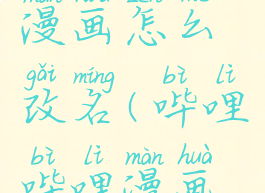 màn huà zěn me
漫画怎么
gǎi míng bì lì
改名(哔哩
bì lì màn huà
哔哩漫画